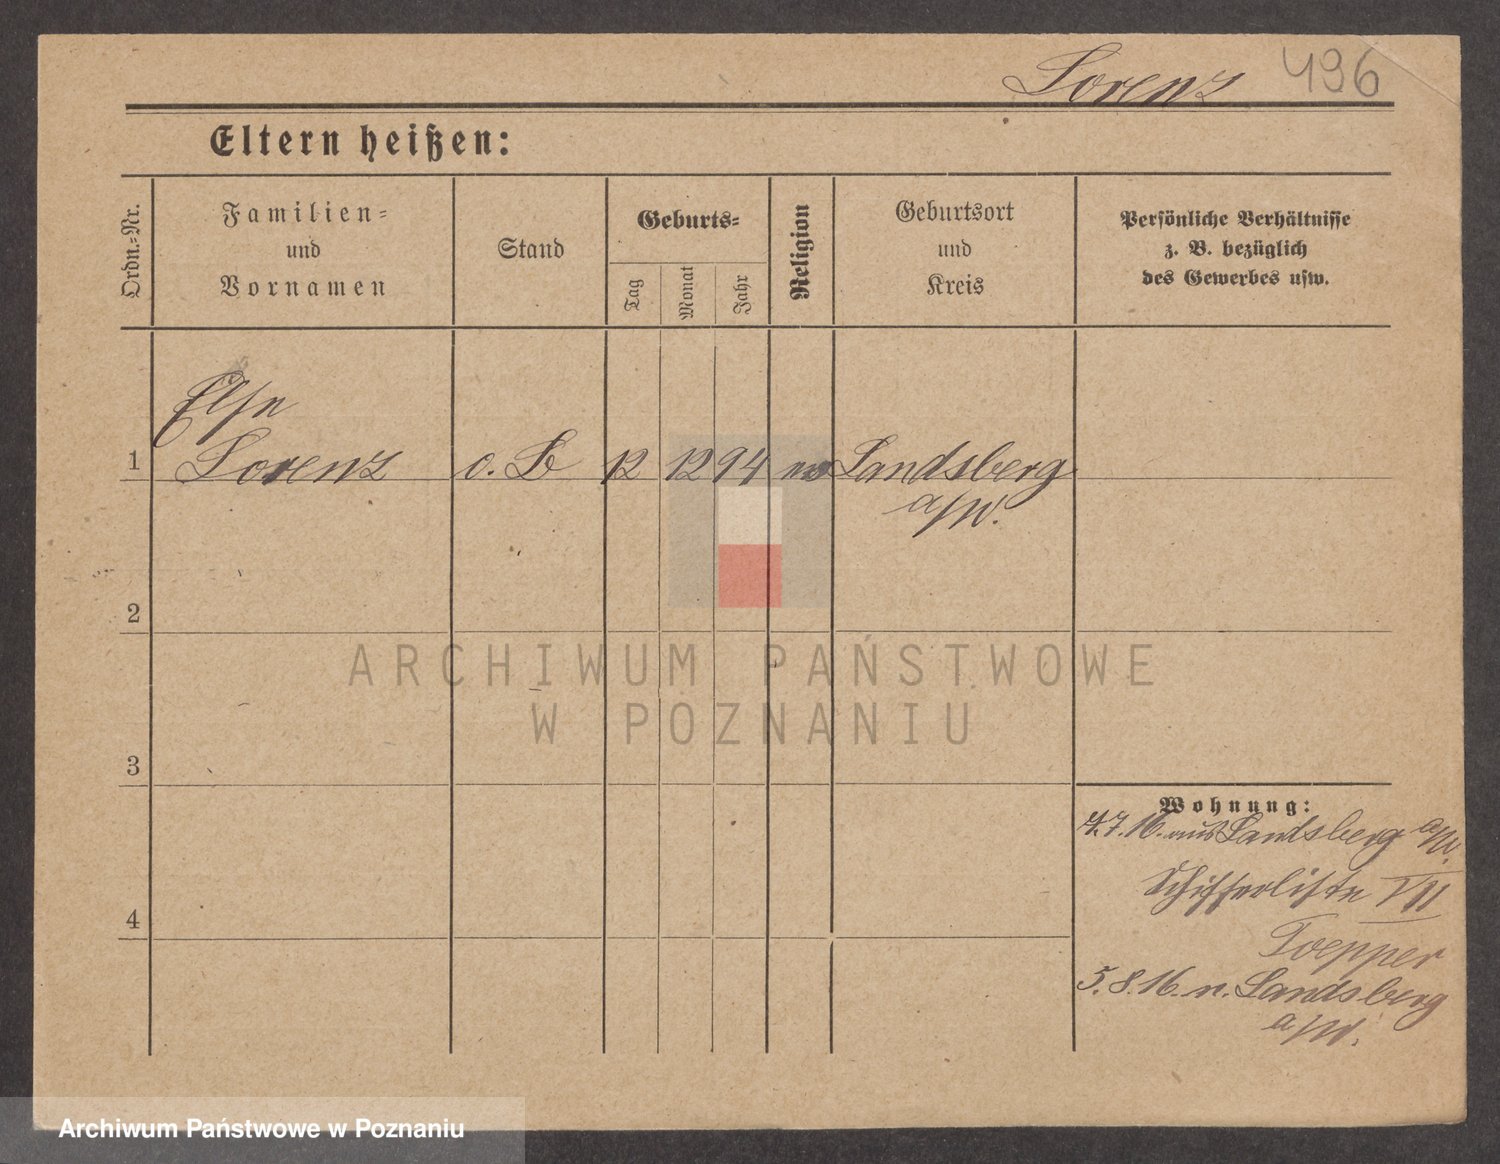 Lorenz 496
Eltern heißen:
Ordn.-Nr.
Familien-
und
Vornamen
Stand
Geburts-
Tag
Monat
Jahr
Religion
Geburtsort
und
Kreis
Persönliche Verhältnisse
z. B. bezüglich
des Gewerbes usw.
Else
1 Lorenz o. B 12 12 94 ev Landsberg
a/W.
2
3
4
Wohnung:
4.7.16. aus Landsberg a/W.
Schifferliste
Toepper
5.8.16. n. Landsberg
a/W.
ARCHIWUM PAŃSTWOWE
W POZNANIU
Archiwum Państwowe w Poznaniu